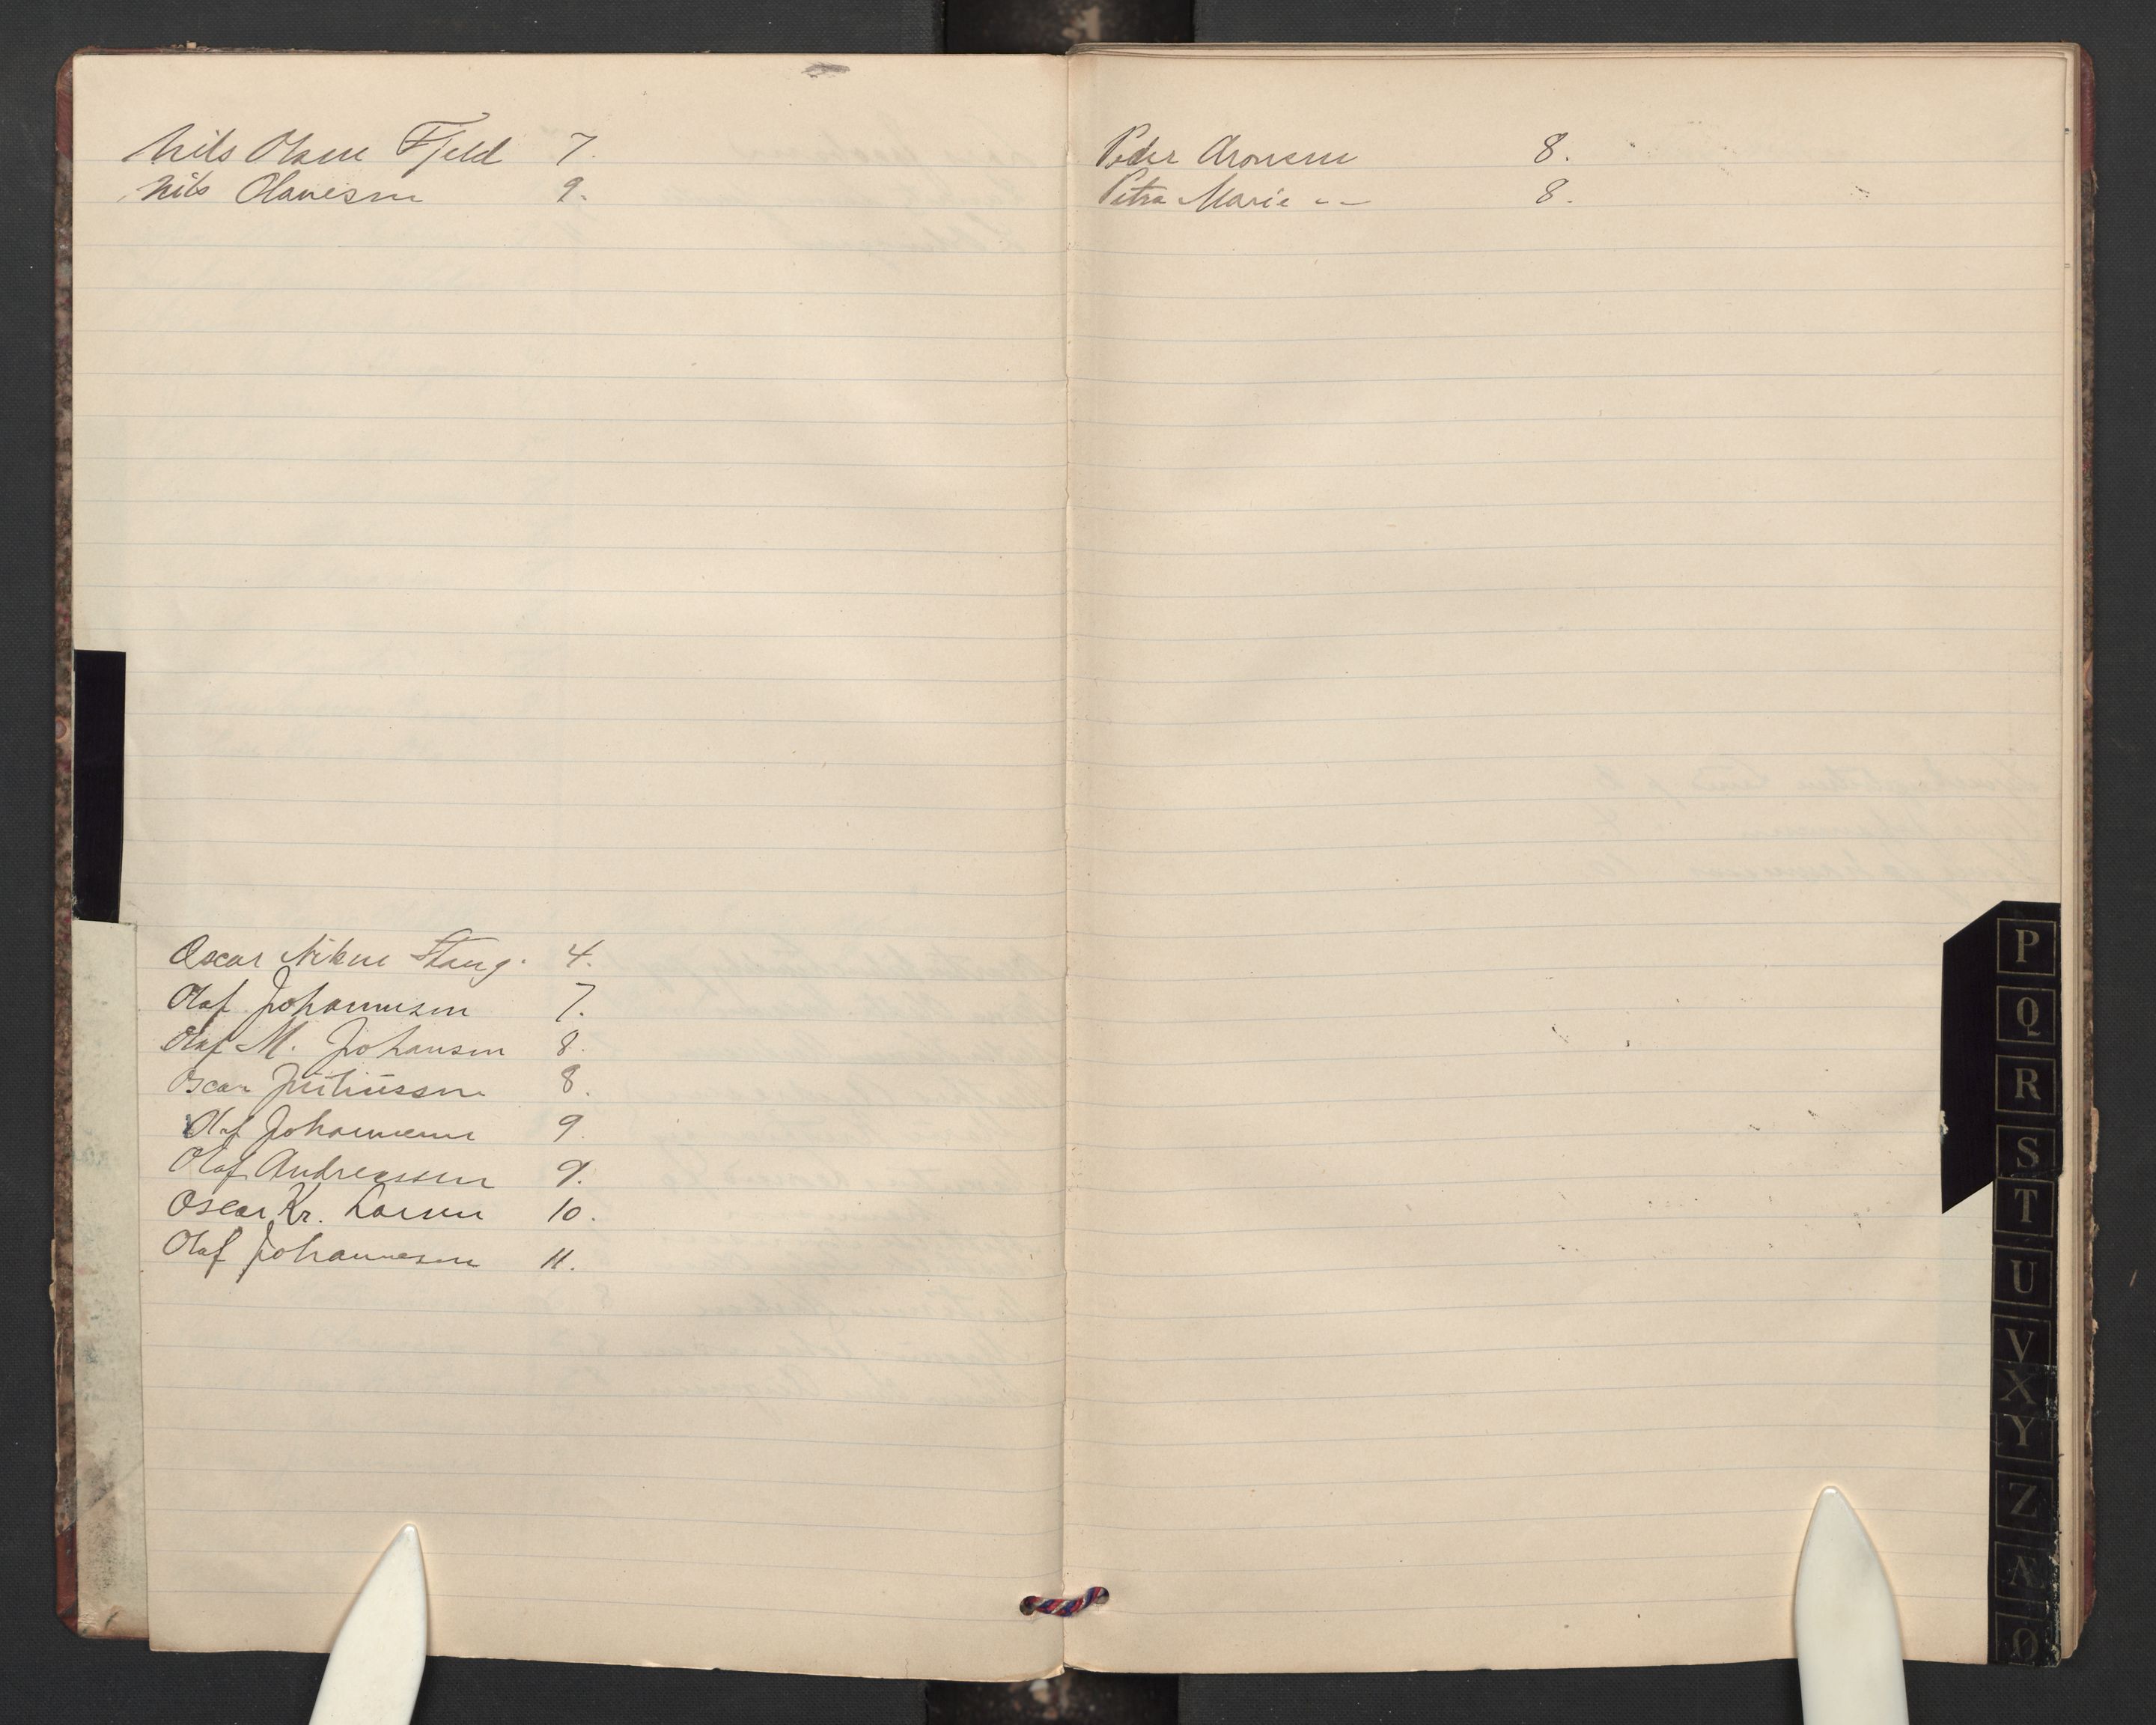 Nils Olsen Fjeld 7.
Nils Olavesen 9.
Oscar Nilsen Stang. 4.
Olaf Johannesen 7.
Olaf M. Johansen 8.
Oscar Juliussen 8.
Olaf Johannesen 9.
Olaf Andreassen 9.
Oscar Kr. Larsen 10.
Olaf Johannesen 11.
Peder Aronsen 8.
Petra Marie -- 8.
P
Q
R
S
T
U
V
X
Y
Z
Æ
Ø